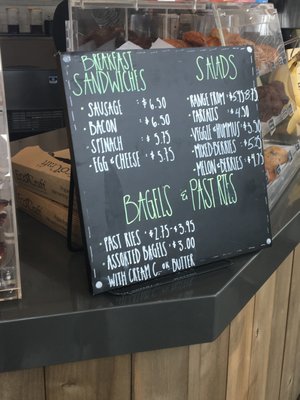 BREAKFAST
SANDWICHES
• SAUSAGE : $6.50
• BACON : $6.50
• SPINACH : $5.75
• EGG & CHEESE : $5.75
SALADS
• RANGE FROM :
• PARFAITS : $4.50
• VEGGIE & HUMMUS
• MIXED BERRIES :
• MELON & BERRIES :
BAGELS & PASTRIES
• PASTRIES : $2.75-$3.95
• ASSORTED BAGELS : $3.00
WITH CREAM C. OR BUTTER